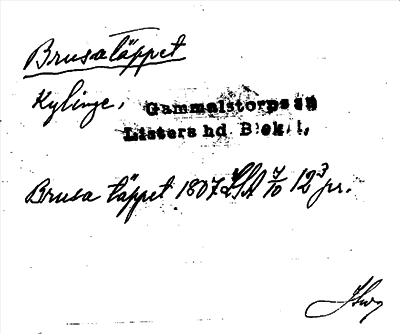 Brusatäppet
Kylinge, Gammalstorps sn
Listers hd Blek. l.
Brusa täppet 1807 LSA 7/10 12 3 pr.